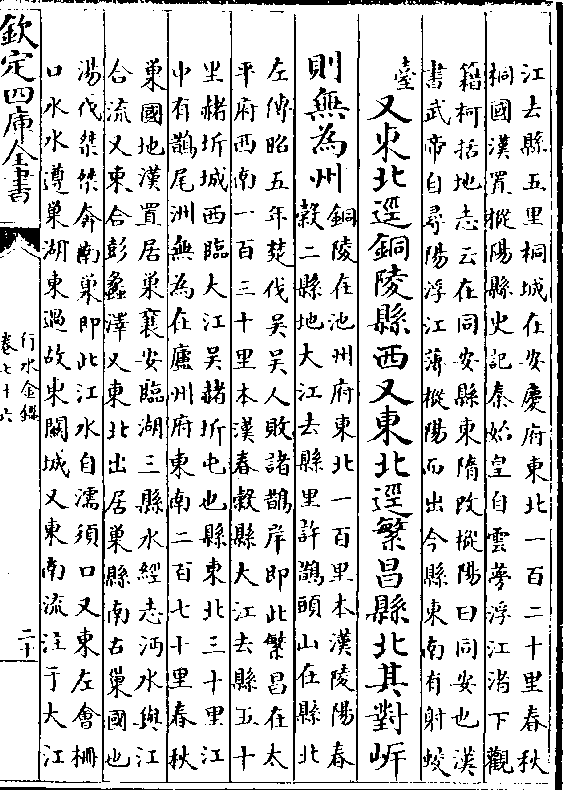 江去縣五里桐城在安慶府東北一百二十里春秋
桐國漢置樅陽縣史記秦始皇自雲夢浮江渚下觀
籍柯括地志云在同安縣東隋改樅陽曰同安也漢
書武帝自尋陽浮江薄樅陽而出今縣東南有射蛟
臺
又東北逕銅陵縣西又東北逕繁昌縣北其對㟁
則無為州
銅陵在池州府東北一百里本漢陵陽春
穀二縣地大江去縣里許鵲頭山在縣北
左傳昭五年楚伐吳吳人敗諸鵲岸即此繁昌在太
平府西南一百三十里本漢春穀縣大江去縣五十
里赭圻城西臨大江吳赭圻屯也縣東北三十里江
中有鵲尾洲無為在廬州府東南二百七十里春秋
巢國地漢置居巢襄安臨湖三縣水經志沔水與江
合流又東合彭蠡澤又東北出居巢縣南古巢國也
湯伐桀桀奔南巢即此江水自濡須口又東左會柵
口水水導巢湖東逕故東關城又東南流注于大江
欽定四庫全書
行水金鑑
卷七十六
二十